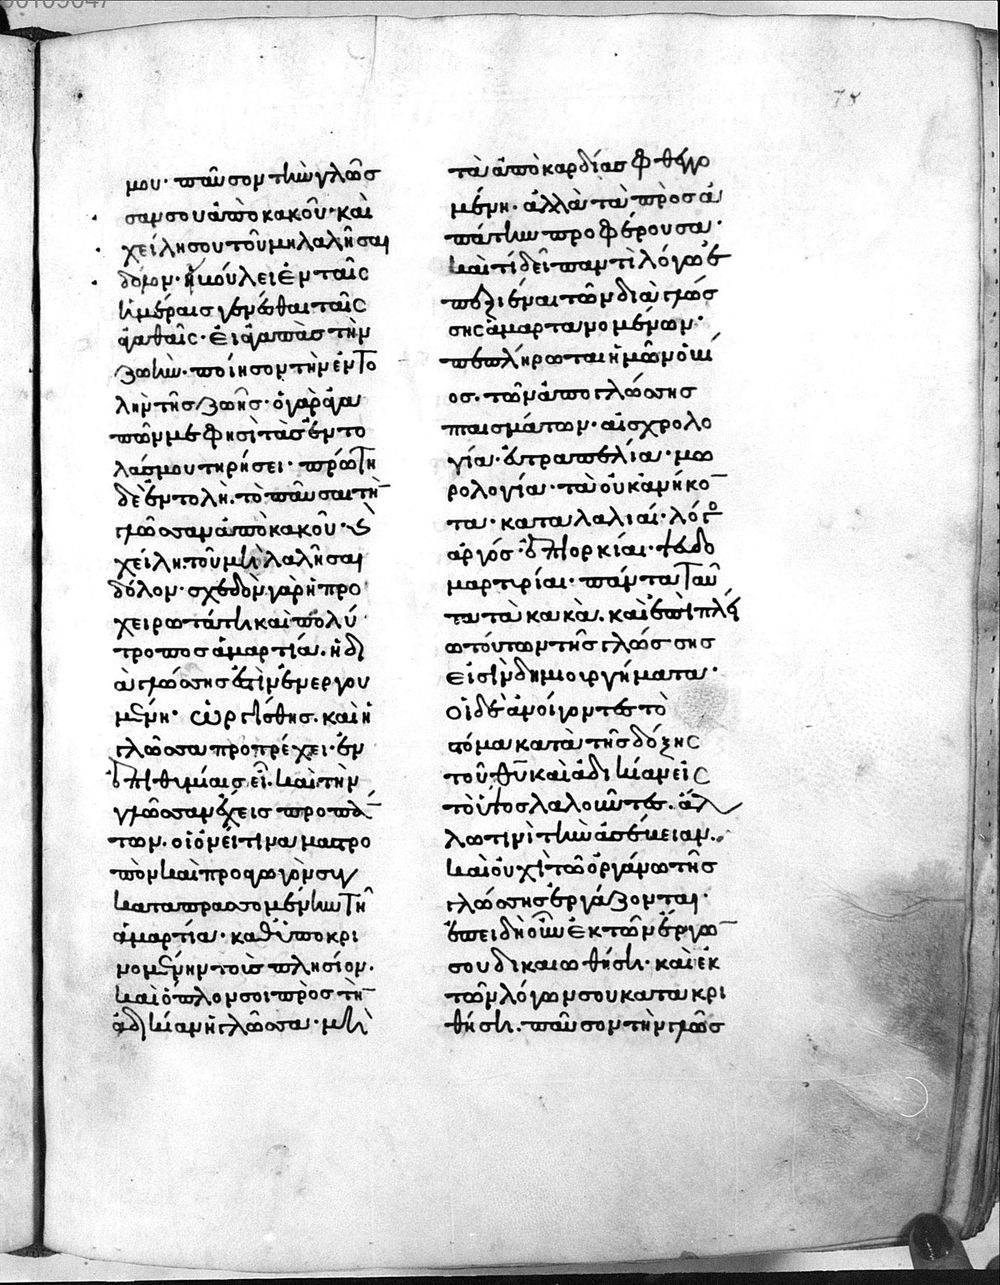 μου· παῦσον τὴν γλῶσ
σαν σου ἀπὸ κακοῦ· καὶ
χείλη σου τοῦ μὴ λαλῆσαι
δόλον· βούλει ἐν ταῖς
ἡμέραις γενέσθαι ταῖς
ἀγαθαῖς· εἰ ἀγαπᾶς τὴν
ζωὴν· ποίησον τὴν ἐντο
λὴν τῆς ζωῆς· ὁ γὰρ ἀγα
πῶν με φησὶ τὰς ἐντο
λάς μου τηρήσει· πρώτη
δὲ ἐντολὴ· τὸ παῦσαι τὴ
γλῶσσαν ἀπὸ κακοῦ· καὶ
χείλη· τοῦ μὴ λαλῆσαι
δόλον· σχεδὸν γὰρ ἡ προ
χειροτάτη καὶ πολύ
τροπος ἁμαρτία· ἡ δι
ὰ γλώσσης ἐστὶν ἐνεργου
μένη· ὠργίσθης· καὶ ἡ
γλῶσσα προτρέχει· ἐν
ἐπιθυμίαις εἶ· καὶ τὴν
γλῶσσαν ἔχεις πρὸ πά
των· οἱονεί τινα μαστρο
πὸν καὶ προαγωγὸν συγ
καταπρασσομένην τῆ
ἁμαρτία· καθυποκρι
νομένην τοὺς πλησίον·
καὶ ὅπλον σοι πρὸς τὴ
ἀδικίαν ἡ γλῶσσα· μὴ
τὰ ἀπὸ καρδίας φθεγγο
μένη· ἀλλὰ τὰ πρὸς ἀ
πάτην προφέρουσα·
καὶ τί δεῖ πάντι λόγω ἐ
πεξιέναι τῶν διὰ γλώσ
σης ἁμαρτανομένων·
πεπλήρωται ἡμῶν ὁ βί
ος· τῶν ἀπὸ γλώσσης
πταισμάτων· αἰσχρολο
γία· εὐτραπελία· μω
ρολογία· τὰ οὐκ ἀνήκο
τα· καταλαλιαί· λόγος
ἀργός· ἐπιορκίαι· ψευδο
μαρτυρίαι· πάντα ταῦ
τα τὰ κακὰ· καὶ ἐπὶ πλεί
ω τούτων τῆς γλώσσης
εἰσὶν δημιουργήματα·
οἱ δὲ ἀνοίγοντες τὸ
στόμα κατὰ τῆς δόξης
τοῦ θυ καὶ ἀδικίαν εἰς
τὸ ὕψος λαλοῦντες· ἄλ
λω τινὶ τὴν ἀσέβειαν·
καὶ οὐχὶ τῶ ὀργάνω τῆς
γλώσσης ἐργάζονται·
ἐπειδὴ οὖν ἐκ τῶν ἔργω
σου δικαιωθήση· καὶ ἐκ
τῶν λόγων σου κατακρι
θήση· παῦσον τὴν γλῶσ